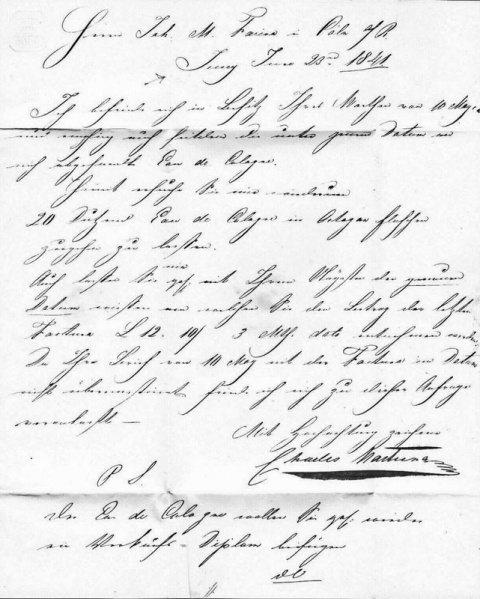 Herrn Joh. M. Farina in Cöln a/R.
Juny 23rd 1841
Ich befinde mich im Besitz Ihres Werthen vom 10 May
und auch seitdem die unter Datum an
mich abgesandte Eau de Cologne.
Hiermit ersuche Sie mir wiederum
20 Dutzend Eau de Cologne in flaschen
zugehen zu lassen.
Auch lassen Sie mir gef. mit Ihrem Nächsten den genauen
Datum wissen an welchem Sie den Betrag der letzten
Factura L 12. 10/ 3 Mt. dato entnehmen werden
Da Ihr Brief vom 10 May mit der Factura im Datum
nicht übereinstimmt finde ich mich zu dieser Anfrage
veranlasst —
Mit Hochachtung zeichne
Charles
P S.
Der Eau de Cologne wollen Sie gef. wieder
ein Verkaufs-Diplom beifügen
do